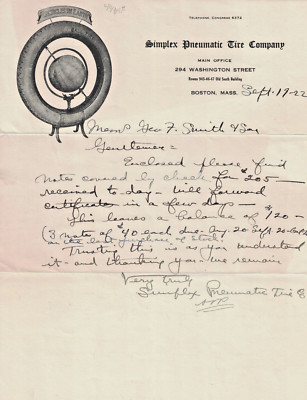 TELEPHONE, CONGRESS 6072
Simplex Pneumatic Tire Company
MAIN OFFICE
294 WASHINGTON STREET
Old South Building
BOSTON, MASS. Sept-19-22
Messrs Geo F. Smith & Son
Gentlemen=
Enclosed please find
notes covered by check for $205—
received to-day — will forward
certificate in a few days—
This leaves a balance of $120—
(3 notes of $40 each due Aug. 20 Sept. 20
in the last share of stock.
Trusting this is as you understand
it — and thanking you we remain
Very truly
Simplex Pneumatic Tire Co